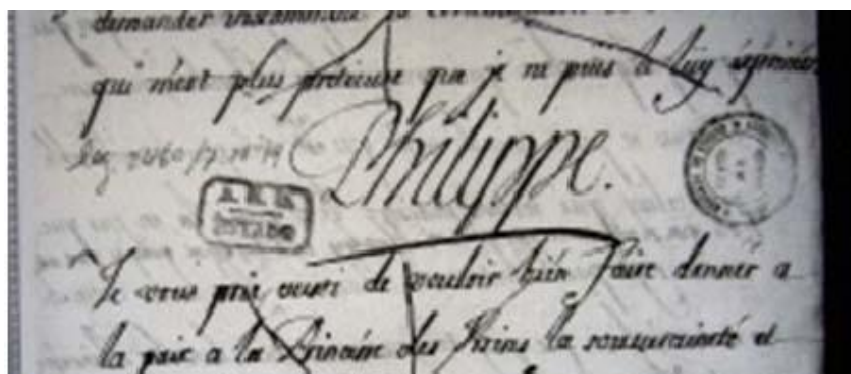 demander instamment la
qui m'est plus prétieuse que je ne puis a luy exprimer
Philippe.
A. H. N.
ESTADO
Je vous prie aussi de vouloir bien faire donner a
la paix a la Princesse des Ursins la souveraineté et